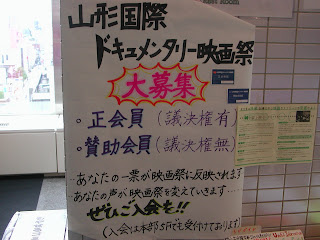 山形国際
ドキュメンタリー映画祭
大募集
・正会員(議決権有)
・賛助会員(議決権無)
‥あなたの一票が映画祭に反映されます
あなたの声が映画祭を変えていきます‥‥
ぜひご入会を!!
(入会は本部5Fでも受付けております)